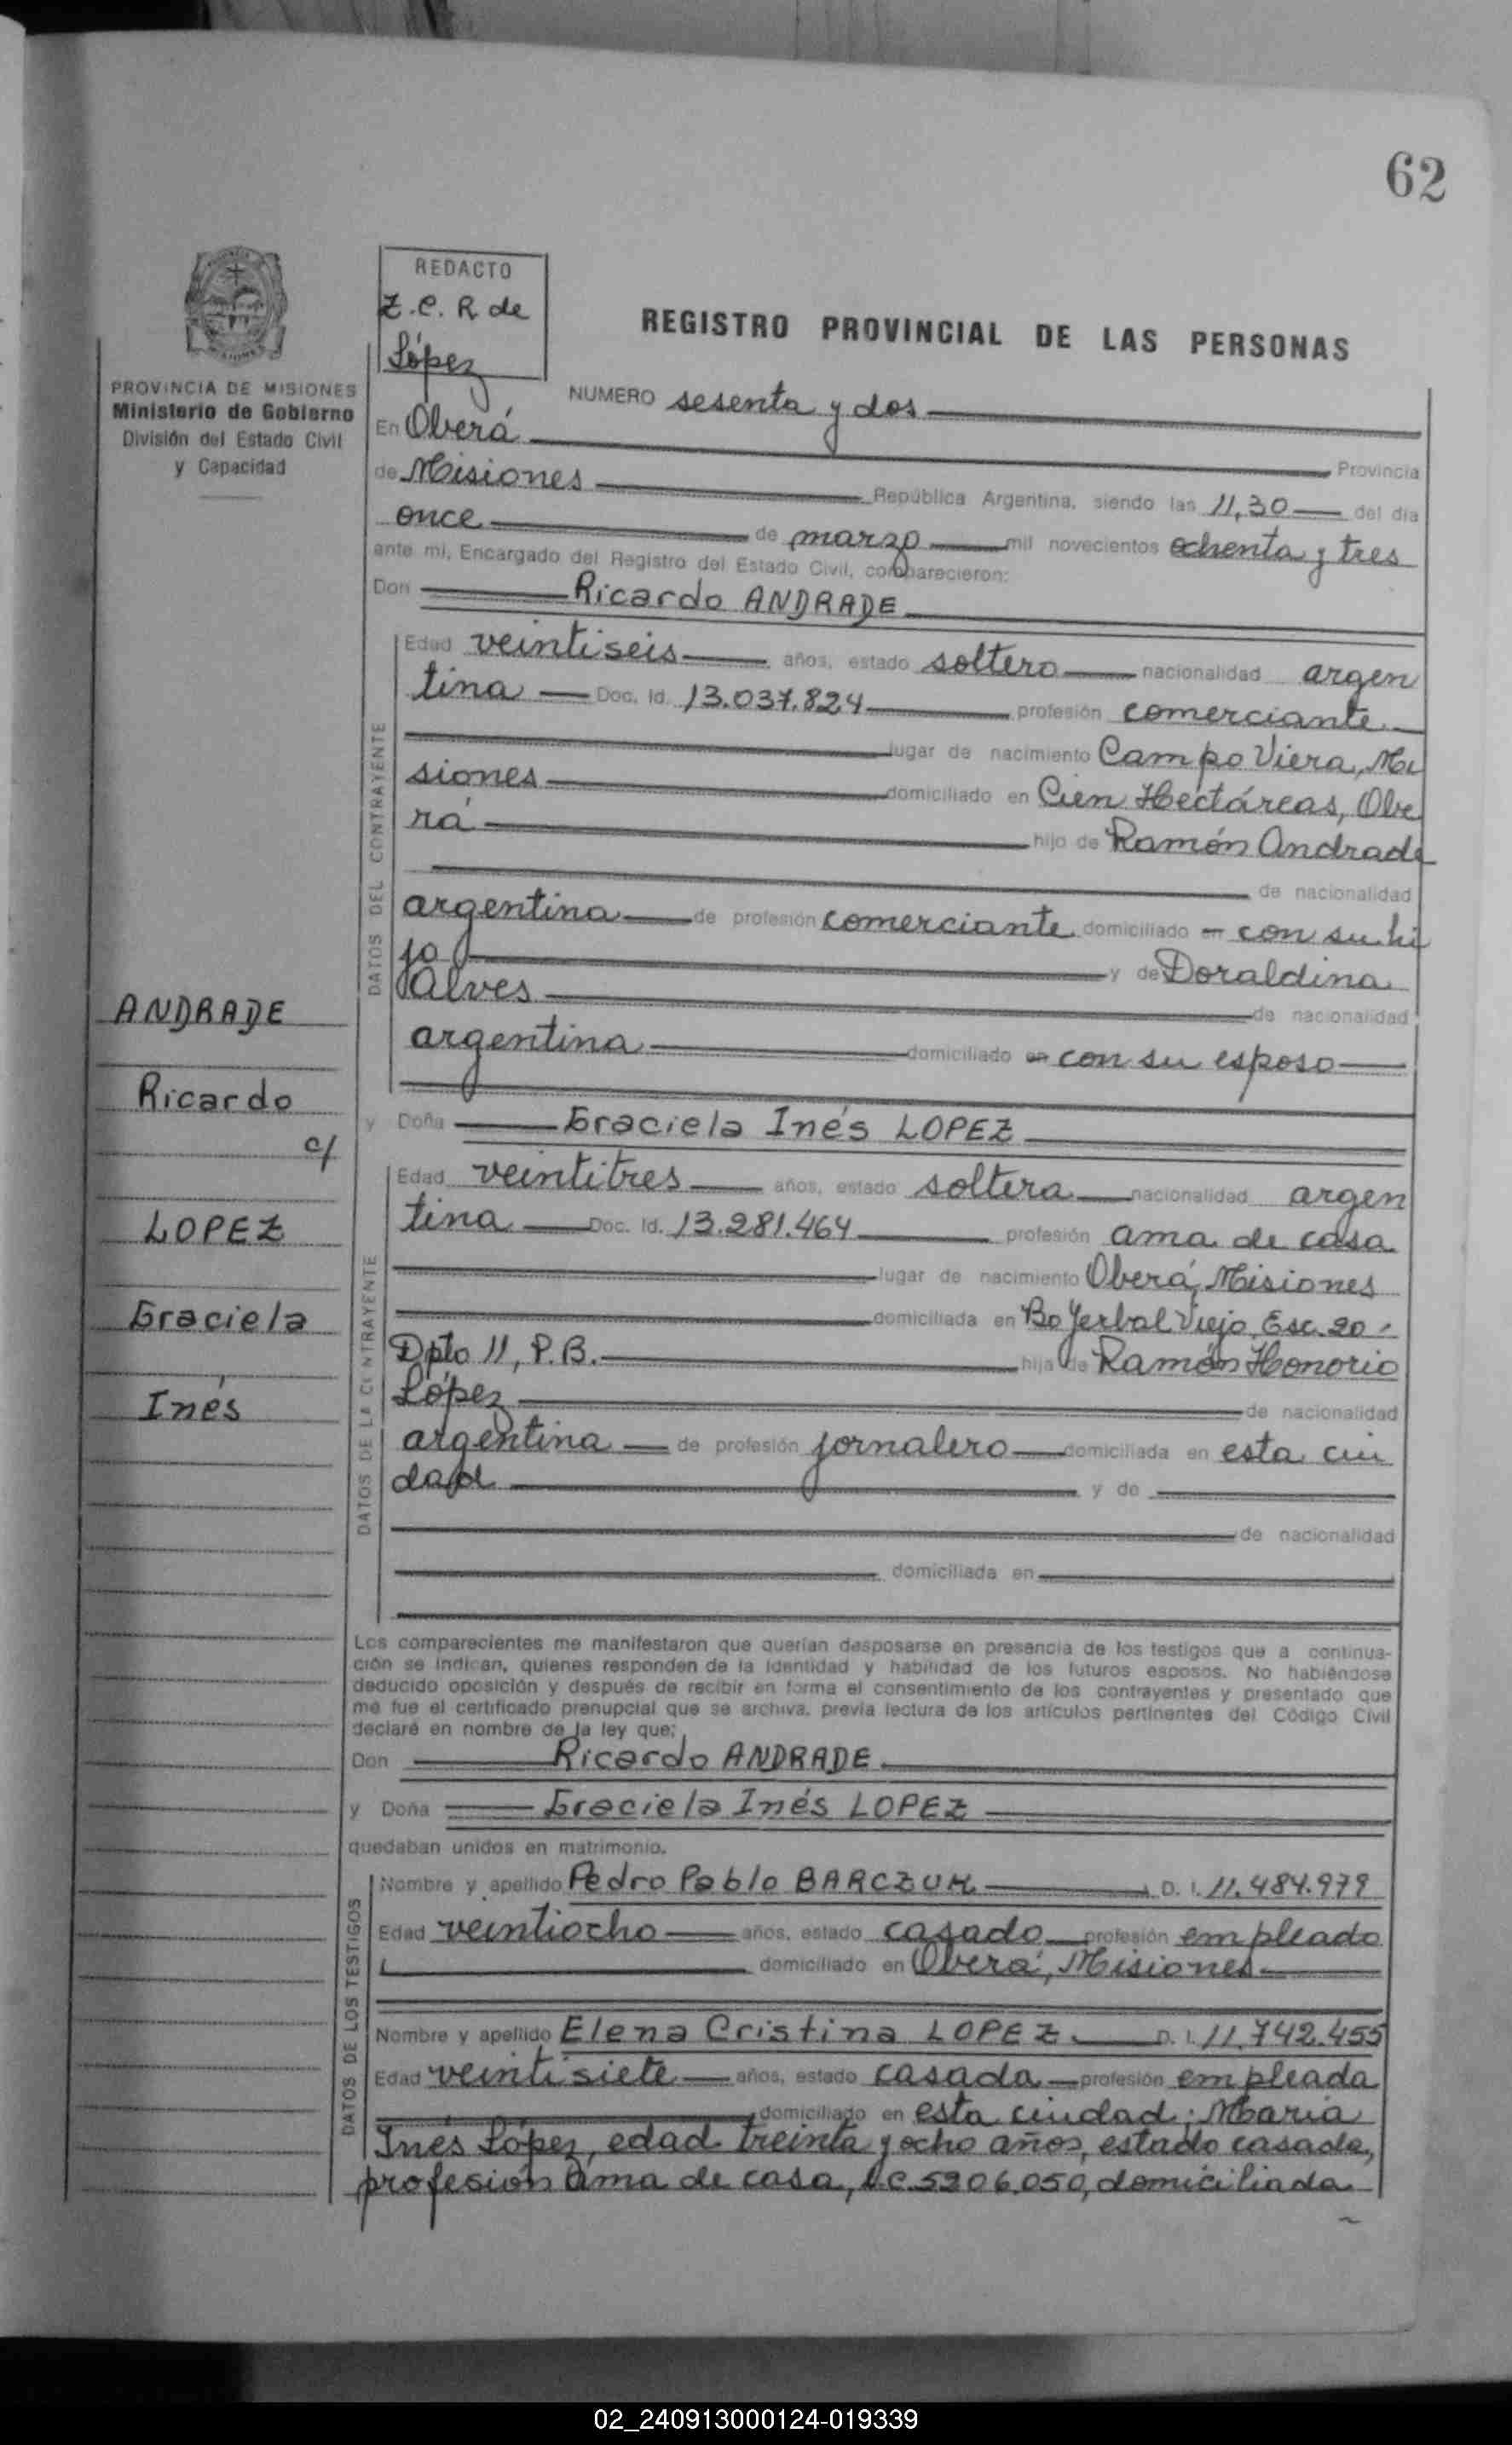 62
REDACTO
Z.C. R de
López
REGISTRO PROVINCIAL DE LAS PERSONAS
PROVINCIA DE MISIONES
Ministerio de Gobierno
División del Estado Civil
y Capacidad
NUMERO sesenta y dos
En Oberá
Provincia
de Misiones República Argentina, siendo las 11,30 del día
once de marzo mil novecientos ochenta y tres
ante mí, Encargado del Registro del Estado Civil, comparecieron:
Don Ricardo ANDRADE
DATOS DEL CONTRAYENTE
Edad veintiseis años, estado soltero nacionalidad argen
tina Doc. Id. 13.037.824 profesión comerciante
lugar de nacimiento Campo Viera, Mi
siones domiciliado en Cien Hectáreas, Obe
rá hijo de Ramón Andrade
de nacionalidad
argentina de profesión comerciante domiciliado en con su hi
jo y de Doraldina
Alves de nacionalidad
argentina domiciliado en con su esposo
ANDRADE
Ricardo
c/
LOPEZ
Graciela
Inés
y Doña Graciela Inés LOPEZ
DATOS DE LA CONTRAYENTE
Edad veintitres años, estado soltera nacionalidad argen
tina Doc. Id. 13.281.464 profesión ama de casa
lugar de nacimiento Oberá, Misiones
domiciliada en Bo Yerbal Viejo, Esc. 20
Dpto 11, P.B. hija de Ramón Honorio
López de nacionalidad
argentina de profesión jornalero domiciliada en esta ciu
dad y de
de nacionalidad
domiciliada en
Los comparecientes me manifestaron que querían desposarse en presencia de los testigos que a continua-
ción se indican, quienes responden de la identidad y habilidad de los futuros esposos. No habiéndose
deducido oposición y después de recibir en forma el consentimiento de los contrayentes y presentado que
me fue el certificado prenupcial que se archiva, previa lectura de los artículos pertinentes del Código Civil
declaré en nombre de la ley que:
Don Ricardo ANDRADE
y Doña Graciela Inés LOPEZ
quedaban unidos en matrimonio.
DATOS DE LOS TESTIGOS
Nombre y apellido Pedro Pablo BARCZUK D. I. 11.484.979
Edad veintiocho años, estado casado profesión empleado
domiciliado en Oberá, Misiones
Nombre y apellido Elena Cristina LOPEZ D. I. 11.742.455
Edad veintisiete años, estado casada profesión empleada
domiciliado en esta ciudad; Maria
Inés López, edad treinta y ocho años, estado casada,
profesión ama de casa, L.C. 5906.050, domiciliada
02_240913000124-019339